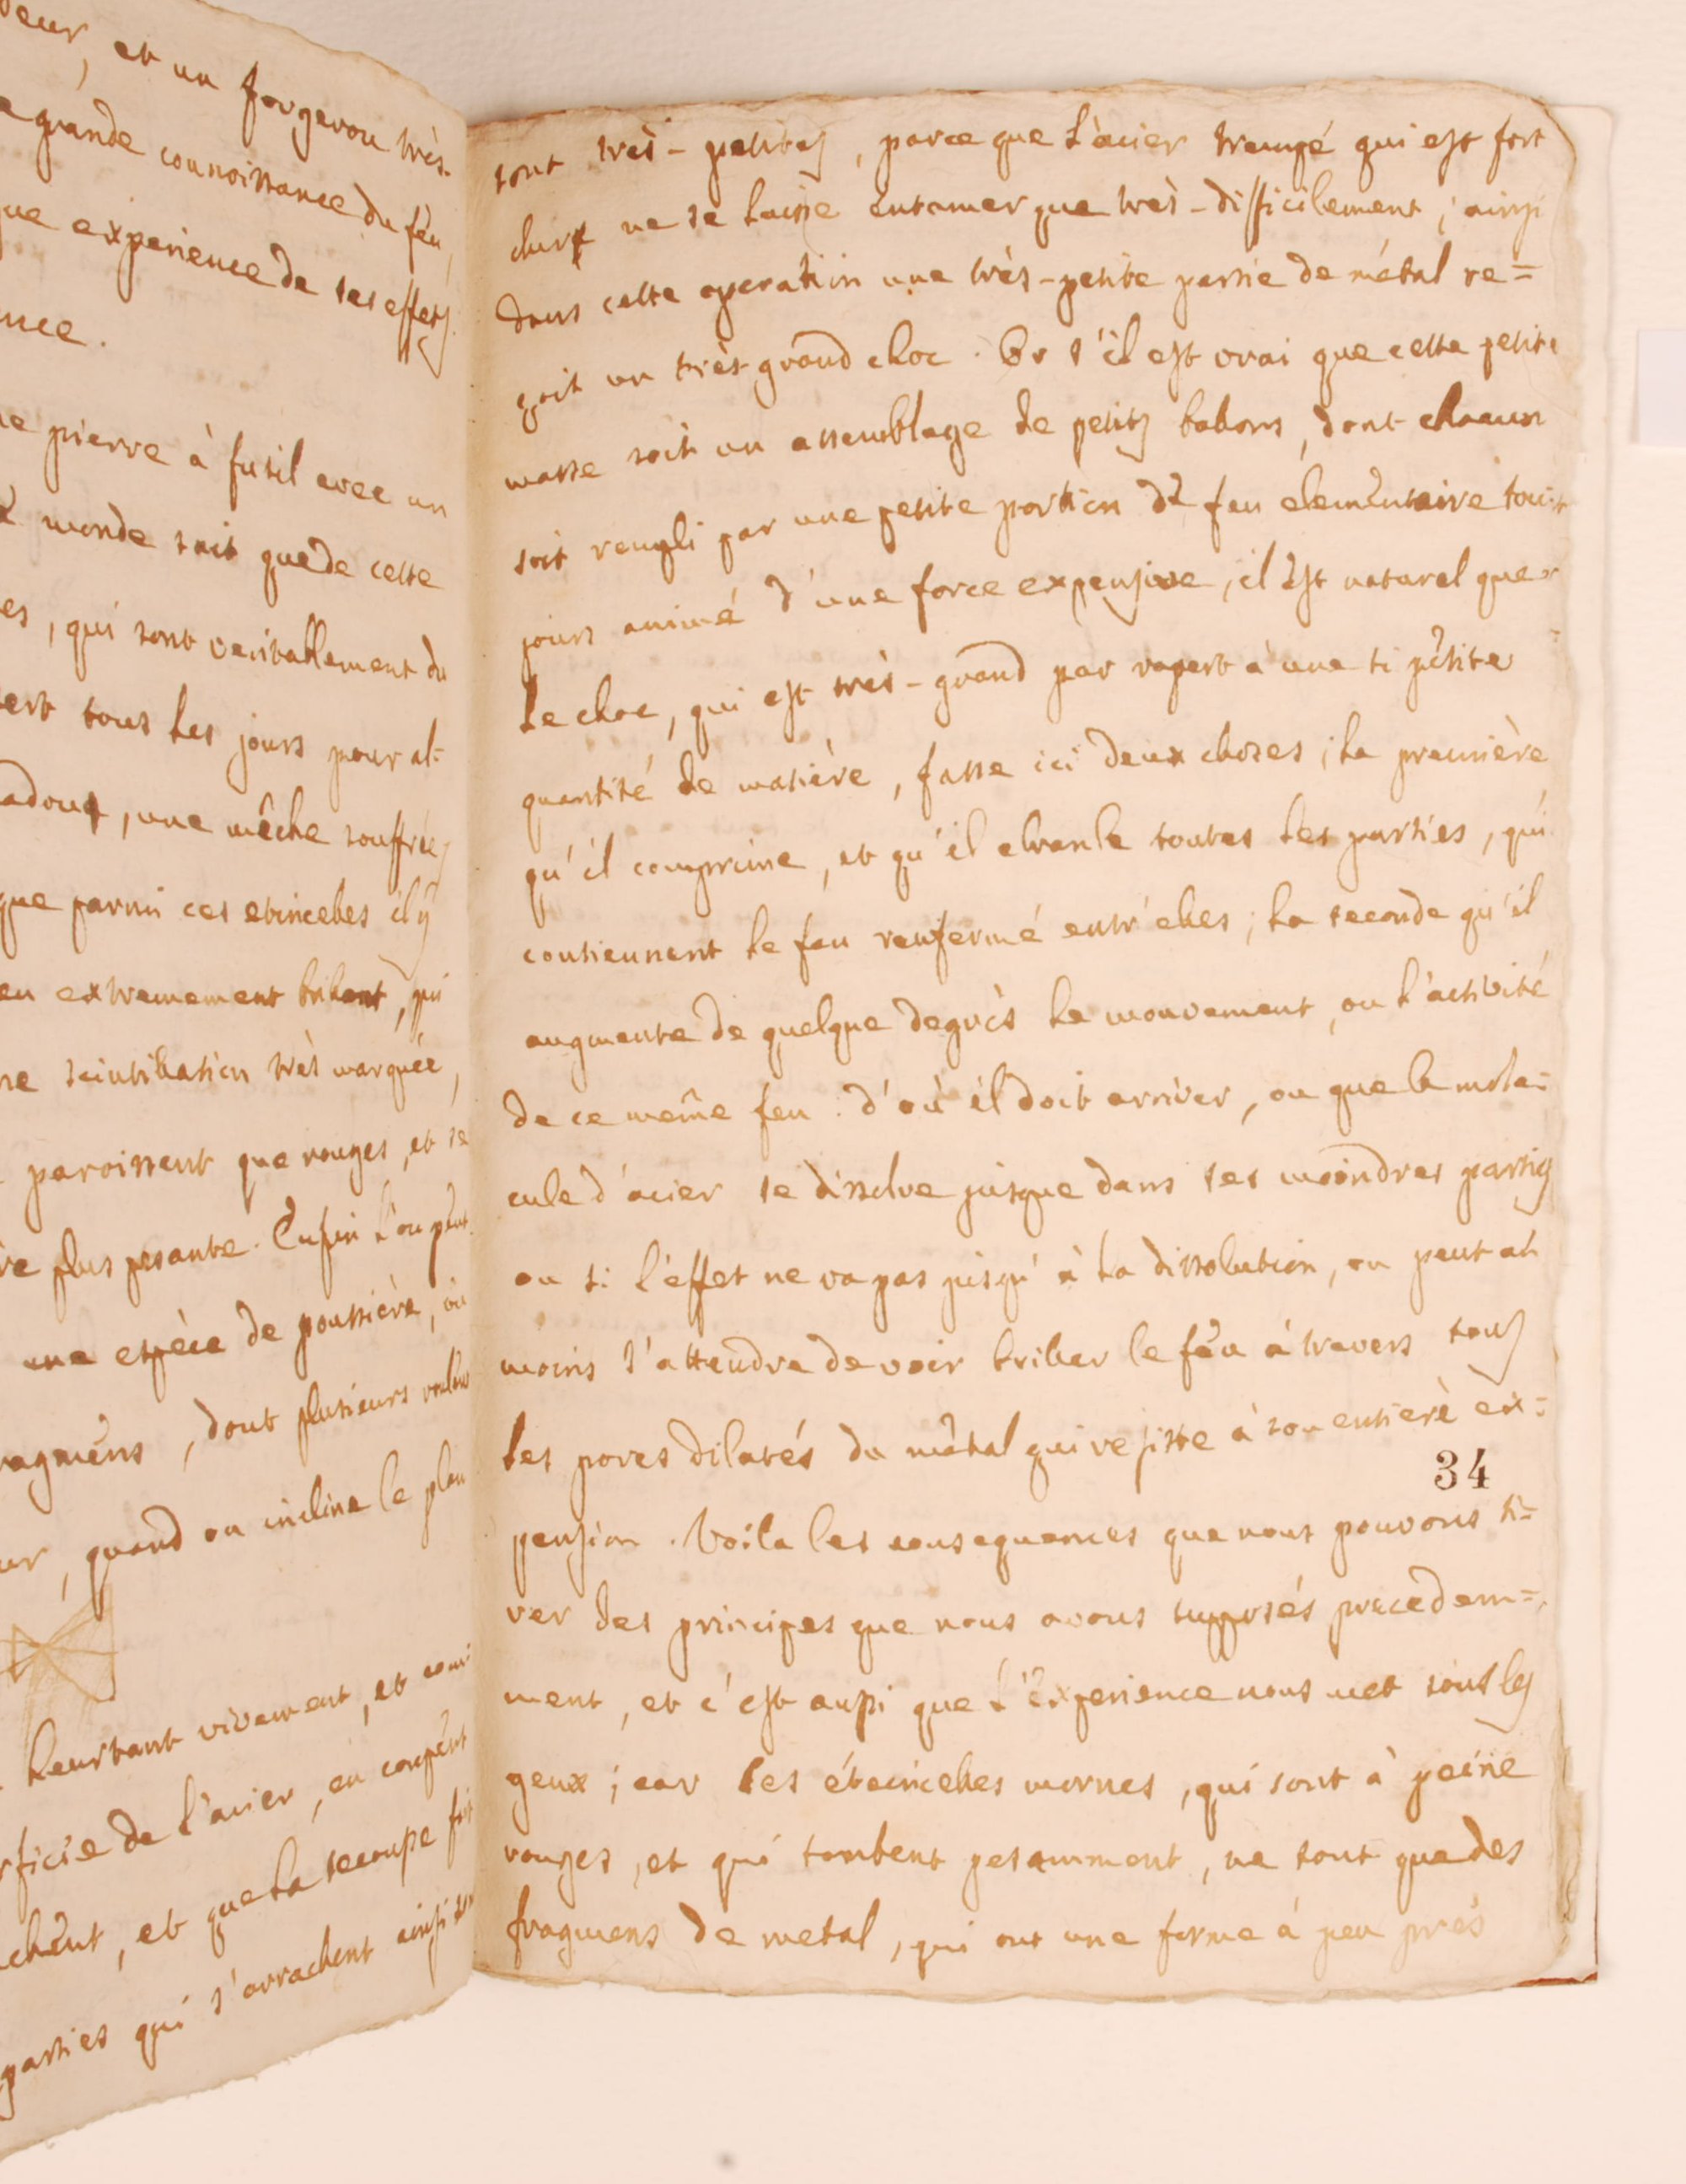 eur, et un forgeron très-
grande connoissance du feu,
ue experience de ses effets.
nce.
e pierre à fusil avec un
monde sait que de cette
es, qui sont veritablement du
ert tous les jours pour al=
adoux, une mêche souffrée,
que parmi ces etincelles il y
eu extremement brilant, qui
ne scintillation très marquée,
paroissent que rouges, et se
re plus pesante. Enfin l'on peut
une espèce de poussière, ou
ragmens, dont plusieurs roulent
ur, quand on incline le plan
heurtant vivement, et com
rficie de l'acier, en coupent
chent, et que la secoupe fait
parties qui s'arrachent ainsi
sont très-petites, parce que l'acier trempé qui est fort
dure ne se laisse entamer que très-difficilement; ainsi
dans cette operation une très-petite partie de métal re=
çoit un très-grand choc. Or s'il est vrai que cette petite
masse soit un assemblage de petits balons, dont chacun
soit rempli par une petite portion de feu elementaire tou=
jours animé d'une force expensive, il est naturel que
le choc, qui est très-grand par raport à une si petite
quantité de matière, fasse ici deux choses; la première
qu'il comprime, et qu'il ebranle toutes les parties, qui
contiennent le feu renfermé entr'elles; la seconde qu'il
augmente de quelque degrés le mouvement, ou l'activité
de ce même feu: d'où il doit arriver, ou que la mole=
cule d'acier se dissolve jusque dans ses moindres parties
ou si l'effet ne va pas jusqu'à la dissolution, on peut au
moins s'attendre de voir briller le feu à travers tous
les pores dilatés du métal qui resiste à son entière ex=
34
pension. Voila les consequences que nous pouvons ti=
rer des principes que nous avons supposés precedem=
ment, et c'est aussi que l'experience nous met sous les
yeux; car les éteincelles mornes, qui sont à peine
rouges, et qui tombent pesamment, ne sont que des
fragmens de metal, qui ont une forme à peu près